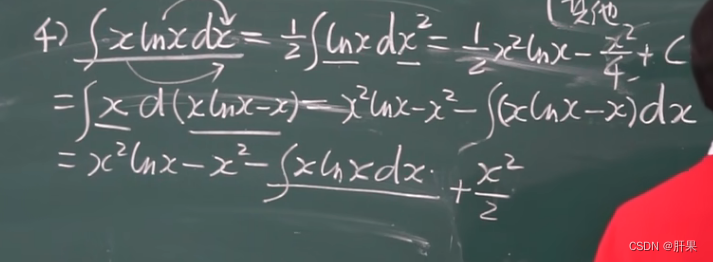 其他
4) ∫x lnx dx = 1/2 ∫lnx dx² = 1/2 x² lnx - x²/4 + C
= ∫x d(x lnx-x) = x² lnx - x² - ∫(x lnx-x)dx
= x² lnx - x² - ∫x lnx dx + x²/2
CSDN @肝果